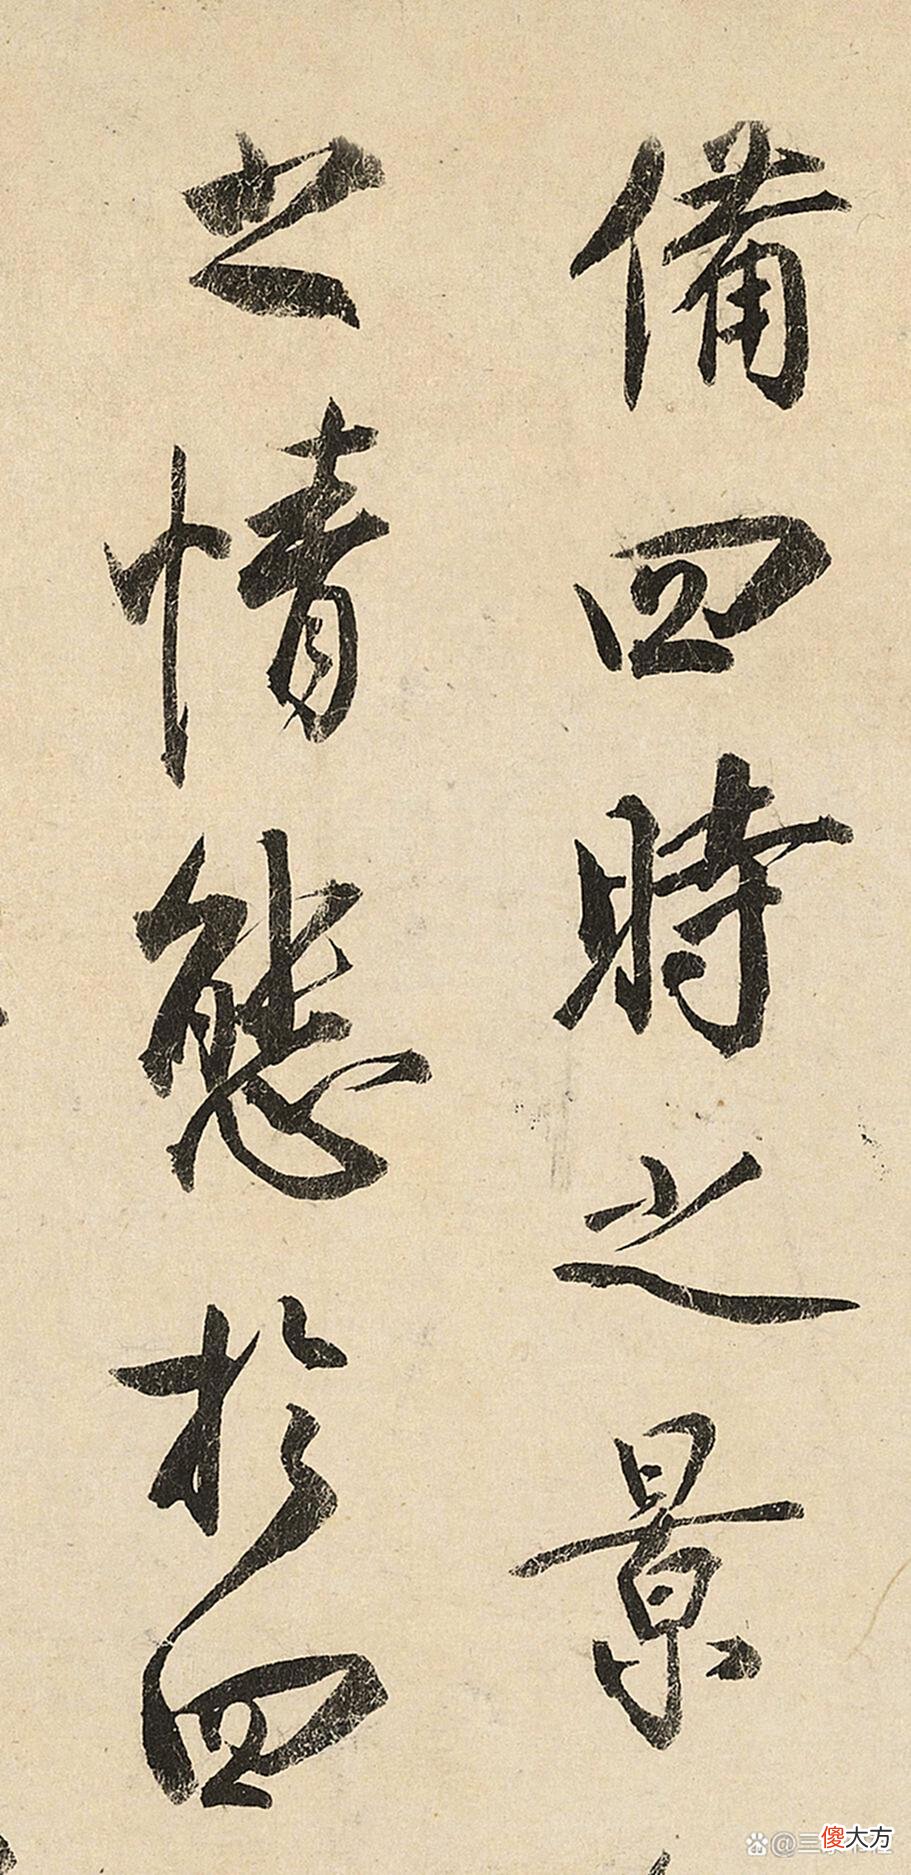 備四時之景
之情態於四
@三
傻大方